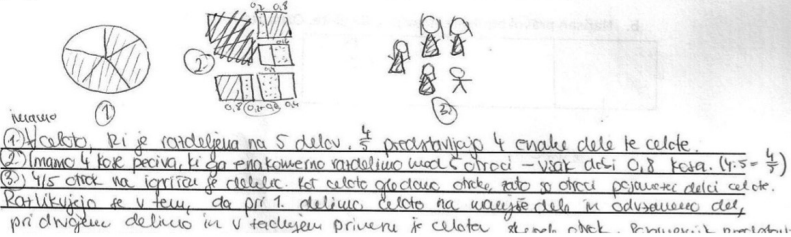 0,2 0,8
0,8 0,4
1
2
3.
imamo
1. celoto, ki je razdeljena na 5 delov. 4/5 predstavljajo 4 enake dele te celote.
2. Imamo 4 kose peciva, ki ga enakomerno razdelimo med 5 otroci – vsak dobi 0,8 kosa. (4:5 = 4/5)
3. 4/5 otrok na igrišču je deklic. Kot celoto gledamo otroke, zato so otroci posamezni delci celote.
Razlikujejo se v tem, da pri 1. delimo celoto na manjše dele in odvzamemo del,
pri drugem delimo in v tretjem primeru je celota skupek otrok.